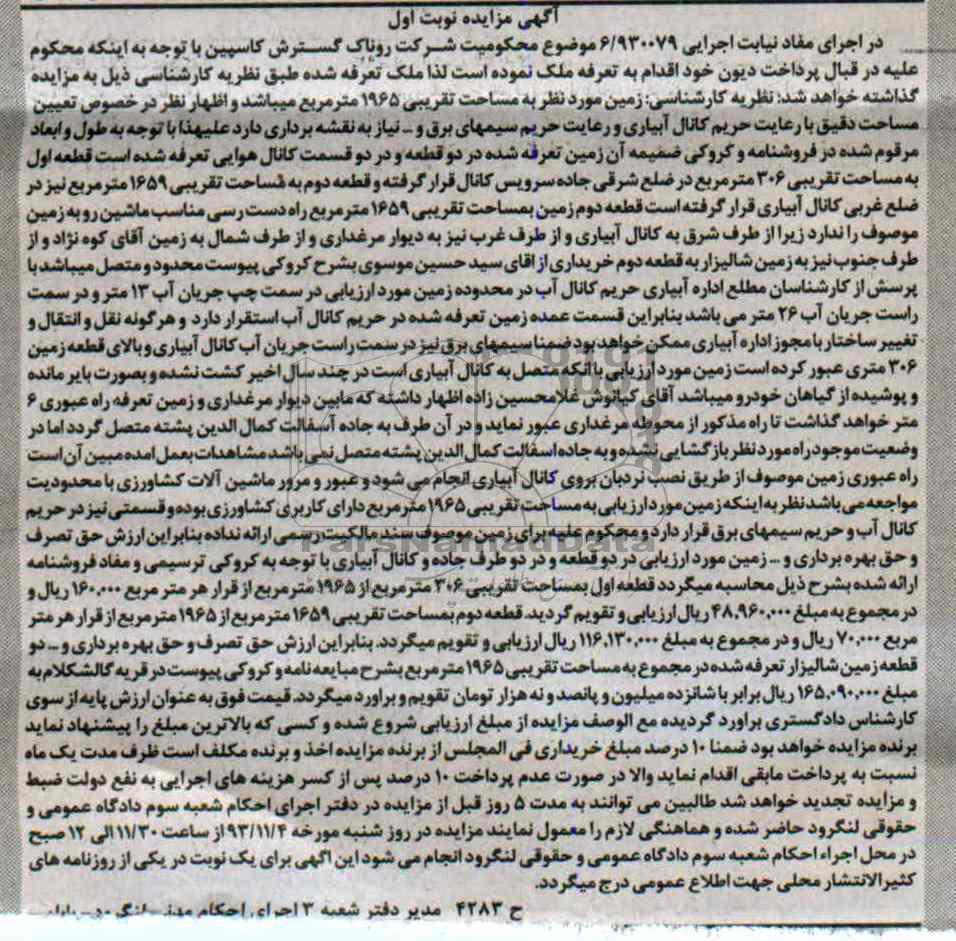 آگهی مزایده نوبت اول
در اجرای مفاد نیابت اجرایی ۶/۹۳۰۰۷۹ موضوع محکومیت شرکت روناک گسترش کاسپین با توجه به اینکه محکوم
علیه در قبال پرداخت دیون خود اقدام به تعرفه ملک نموده است لذا ملک تعرفه شده طبق نظریه کارشناسی ذیل به مزایده
گذاشته خواهد شد: نظریه کارشناسی: زمین مورد نظر به مساحت تقریبی ۱۹۶۵ مترمربع میباشد و اظهار نظر در خصوص تعیین
مساحت دقیق با رعایت حریم کانال آبیاری و رعایت حریم سیمهای برق و ... نیاز به نقشه برداری دارد علیهذا با توجه به طول و ابعاد
مرقوم شده در فروشنامه و کروکی ضمیمه آن زمین تعرفه شده در دو قطعه و در دو قسمت کانال هوایی تعرفه شده است قطعه اول
به مساحت تقریبی ۳۰۶ مترمربع در ضلع شرقی جاده سرویس کانال قرار گرفته و قطعه دوم به مساحت تقریبی ۱۶۵۹ مترمربع نیز در
ضلع غربی کانال آبیاری قرار گرفته است قطعه دوم زمین بمساحت تقریبی ۱۶۵۹ مترمربع راه دسترسی مناسب ماشین رو به زمین
موصوف را ندارد زیرا از طرف شرق به کانال آبیاری و از طرف غرب نیز به دیوار مرغداری و از طرف شمال به زمین آقای کوه نژاد و از
طرف جنوب نیز به زمین شالیزار به قطعه دوم خریداری از اقای سید حسین موسوی بشرح کروکی پیوست محدود و متصل میباشد با
پرسش از کارشناسان مطلع اداره آبیاری حریم کانال آب در محدوده زمین مورد ارزیابی در سمت چپ جریان آب ۱۳ متر و در سمت
راست جریان آب ۲۶ متر می باشد بنابراین قسمت عمده زمین تعرفه شده در حریم کانال آب استقرار دارد و هرگونه نقل و انتقال و
تغییر ساختار با مجوز اداره آبیاری ممکن خواهد بود ضمنا سیمهای برق نیز در سمت راست جریان آب کانال آبیاری و بالای قطعه زمین
۳۰۶ متری عبور کرده است زمین مورد ارزیابی با آنکه متصل به کانال آبیاری است در چند سال اخیر کشت نشده و بصورت بایر مانده
و پوشیده از گیاهان خودرو میباشد آقای کیانوش غلامحسین زاده اظهار داشته که مابین دیوار مرغداری و زمین تعرفه راه عبوری ۶
متر خواهد گذاشت تا راه مذکور از محوطه مرغداری عبور نماید و در آن طرف به جاده آسفالت کمال الدین پشته متصل گردد اما در
وضعیت موجود راه مورد نظر بازگشایی نشده و به جاده اسفالت کمال الدین پشته متصل نمی باشد مشاهدات بعمل امده مبین آن است
راه عبوری زمین موصوف از طریق نصب نردبان بروی کانال آبیاری انجام می شود و عبور و مرور ماشین آلات کشاورزی با محدودیت
مواجعه می باشد نظر به اینکه زمین مورد ارزیابی به مساحت تقریبی ۱۹۶۵ مترمربع دارای کاربری کشاورزی بوده و قسمتی نیز در حریم
کانال آب و حریم سیمهای برق قرار دارد و محکوم علیه برای زمین موصوف سند مالکیت رسمی ارائه نداده بنابراین ارزش حق تصرف
و حق بهره برداری و ... زمین مورد ارزیابی در دو قطعه و در دو طرف جاده و کانال آبیاری با توجه به کروکی ترسیمی و مفاد فروشنامه
ارائه شده بشرح ذیل محاسبه میگردد قطعه اول بمساحت تقریبی ۳۰۶ مترمربع از ۱۹۶۵ مترمربع از قرار هر متر مربع ۱۶۰,۰۰۰ ریال و
در مجموع به مبلغ ۴۸,۹۶۰,۰۰۰ ریال ارزیابی و تقویم گردید. قطعه دوم بمساحت تقریبی ۱۶۵۹ مترمربع از ۱۹۶۵ مترمربع از قرار هر متر
مربع ۷۰,۰۰۰ ریال و در مجموع به مبلغ ۱۱۶,۱۳۰,۰۰۰ ریال ارزیابی و تقویم میگردد. بنابراین ارزش حق تصرف و حق بهره برداری و ... دو
قطعه زمین شالیزار تعرفه شده در مجموع به مساحت تقریبی ۱۹۶۵ مترمربع بشرح مبایعه نامه و کروکی پیوست در قریه گالشکلام به
مبلغ ۱۶۵,۰۹۰,۰۰۰ ریال برابر با شانزده میلیون و پانصد و نه هزار تومان تقویم و براورد میگردد. قیمت فوق به عنوان ارزش پایه از سوی
کارشناس دادگستری براورد گردیده مع الوصف مزایده از مبلغ ارزیابی شروع شده و کسی که بالاترین مبلغ را پیشنهاد نماید
برنده مزایده خواهد بود ضمنا ۱۰ درصد مبلغ خریداری فی المجلس از برنده مزایده اخذ و برنده مکلف است ظرف مدت یک ماه
نسبت به پرداخت مابقی اقدام نماید والا در صورت عدم پرداخت ۱۰ درصد پس از کسر هزینه های اجرایی به نفع دولت ضبط
و مزایده تجدید خواهد شد طالبین می توانند به مدت ۵ روز قبل از مزایده در دفتر اجرای احکام شعبه سوم دادگاه عمومی و
حقوقی لنگرود حاضر شده و هماهنگی لازم را معمول نمایند مزایده در روز شنبه مورخه ۹۳/۱۱/۴ از ساعت ۱۱/۳۰ الی ۱۲ صبح
در محل اجراء احکام شعبه سوم دادگاه عمومی و حقوقی لنگرود انجام می شود این اگهی برای یک نوبت در یکی از روزنامه های
کثیرالانتشار محلی جهت اطلاع عمومی درج میگردد.
ح ۴۲۸۳ مدیر دفتر شعبه ۳ اجرای احکام مدنی
ParsNamadData